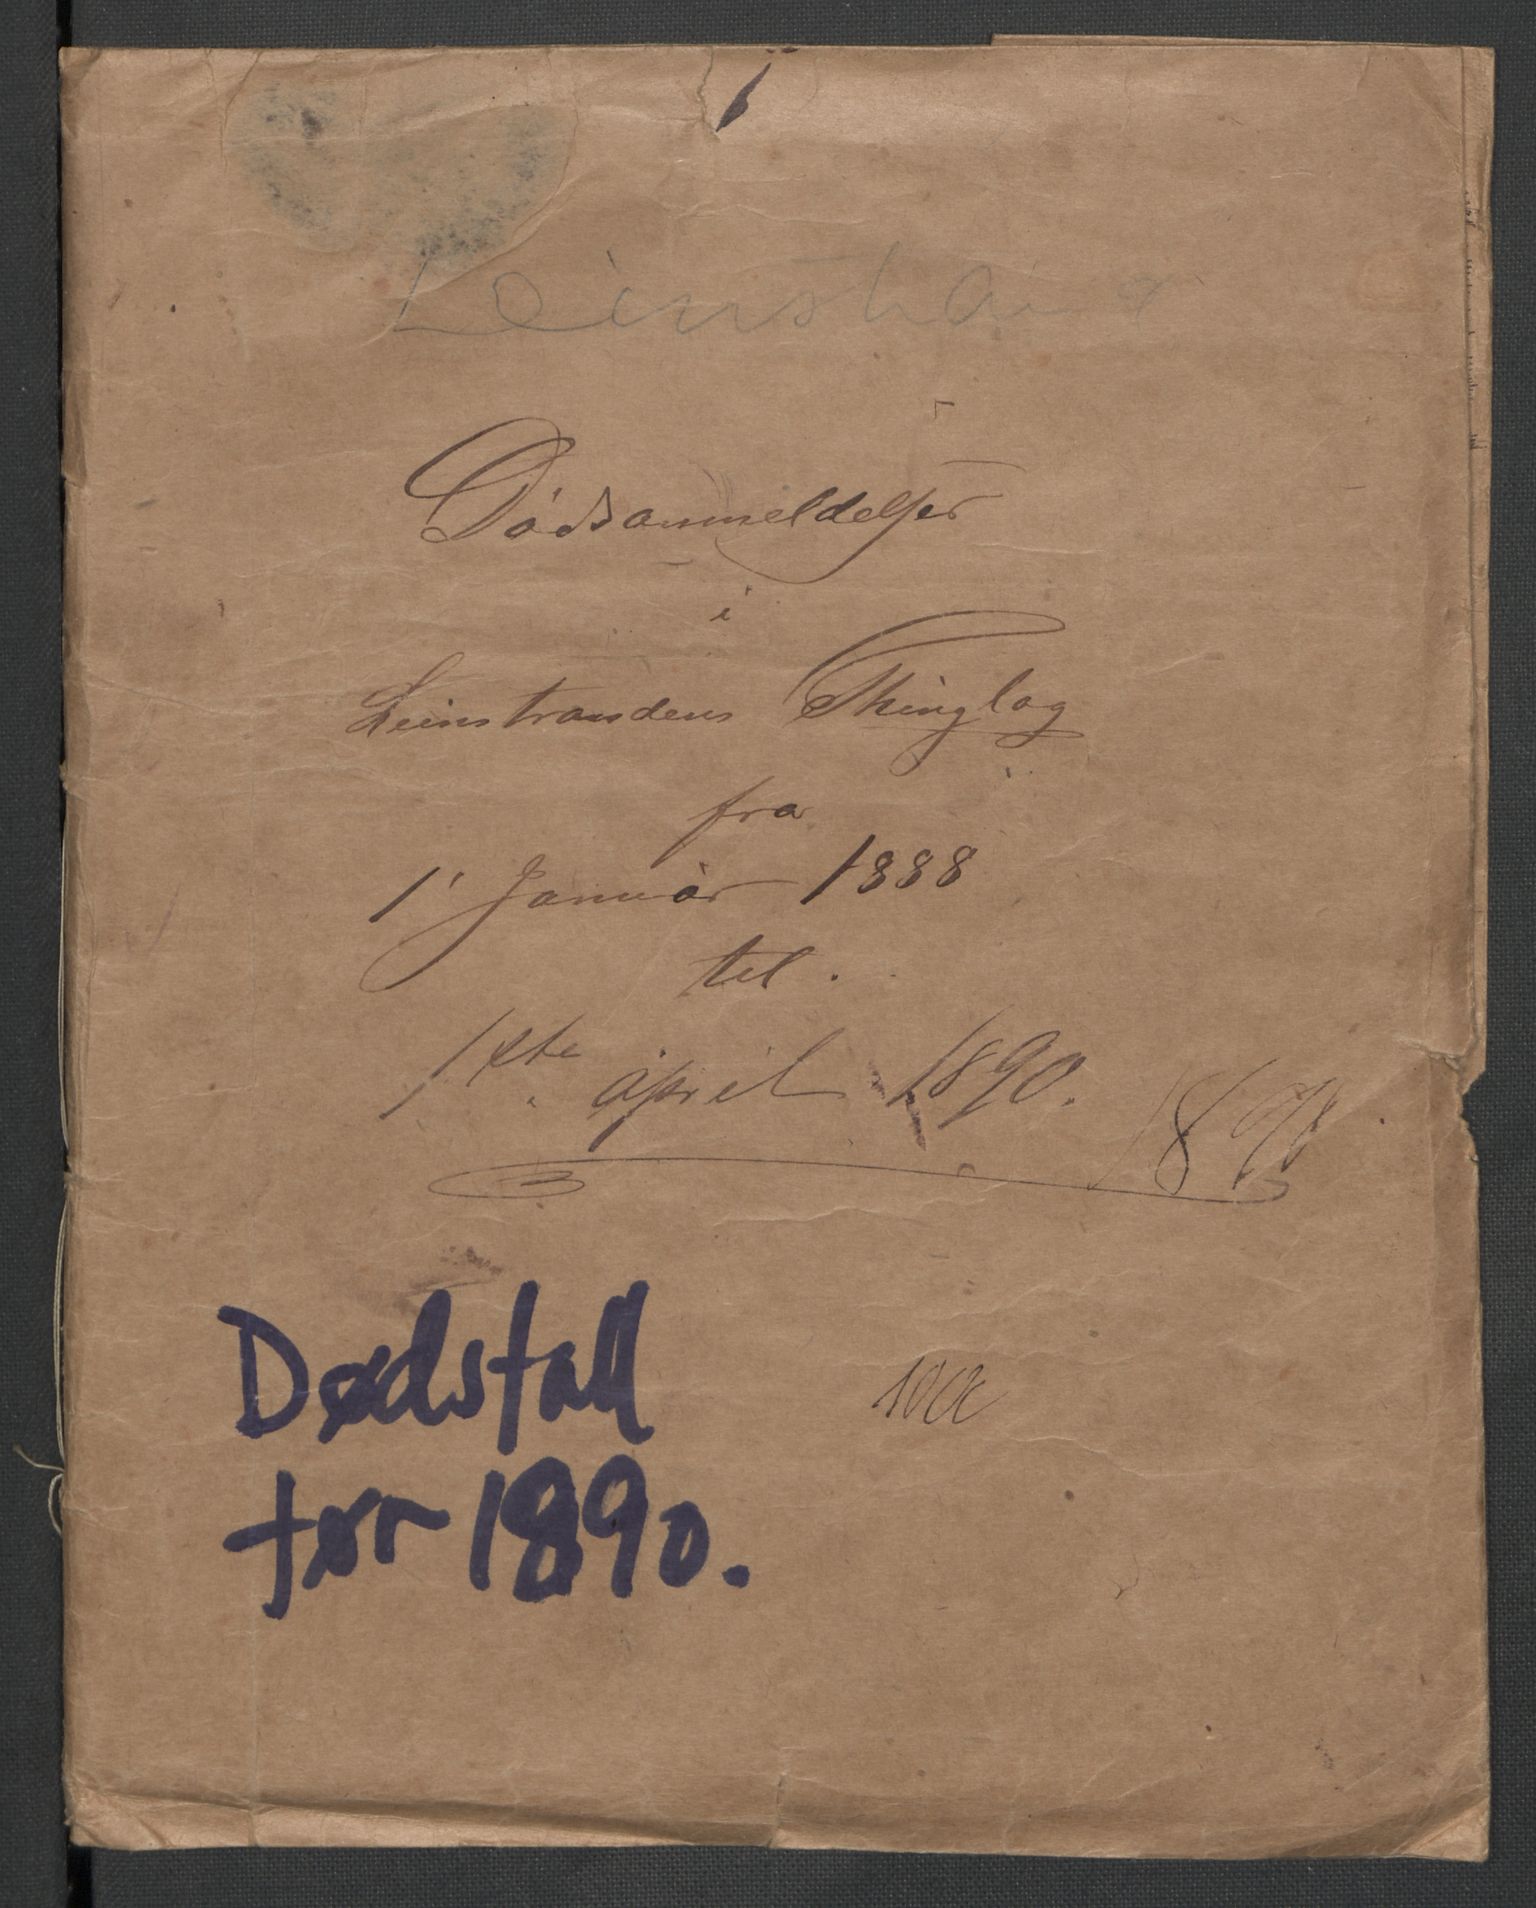 Dødsanmeldelser
i
Leinstrandens Thinglag
fra
1' Januar 1888
til.
1ste april 1890.
Dødsfall
før 1890.